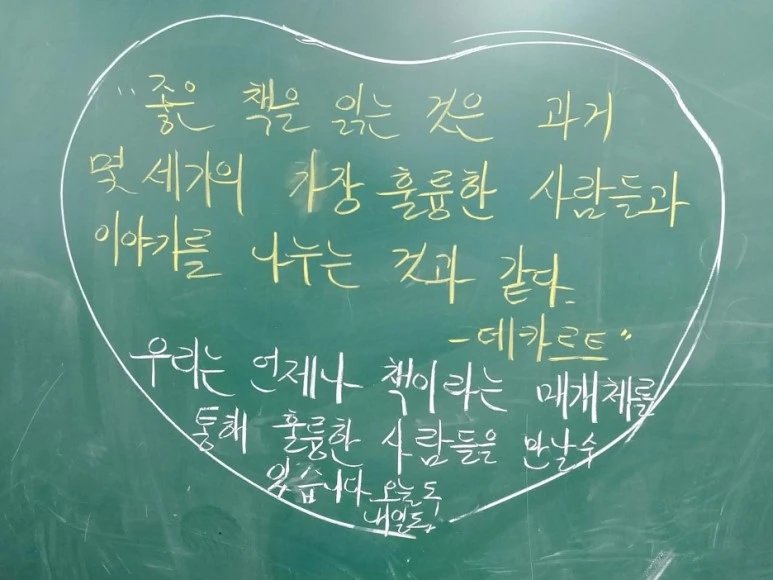 "좋은 책을 읽는 것은 과거
몇 세기의 가장 훌륭한 사람들과
이야기를 나누는 것과 같다.
-데카르트"
우리는 언제나 책이라는 매개체를
통해 훌륭한 사람들을 만날수
있습니다. 오늘도
내일도.